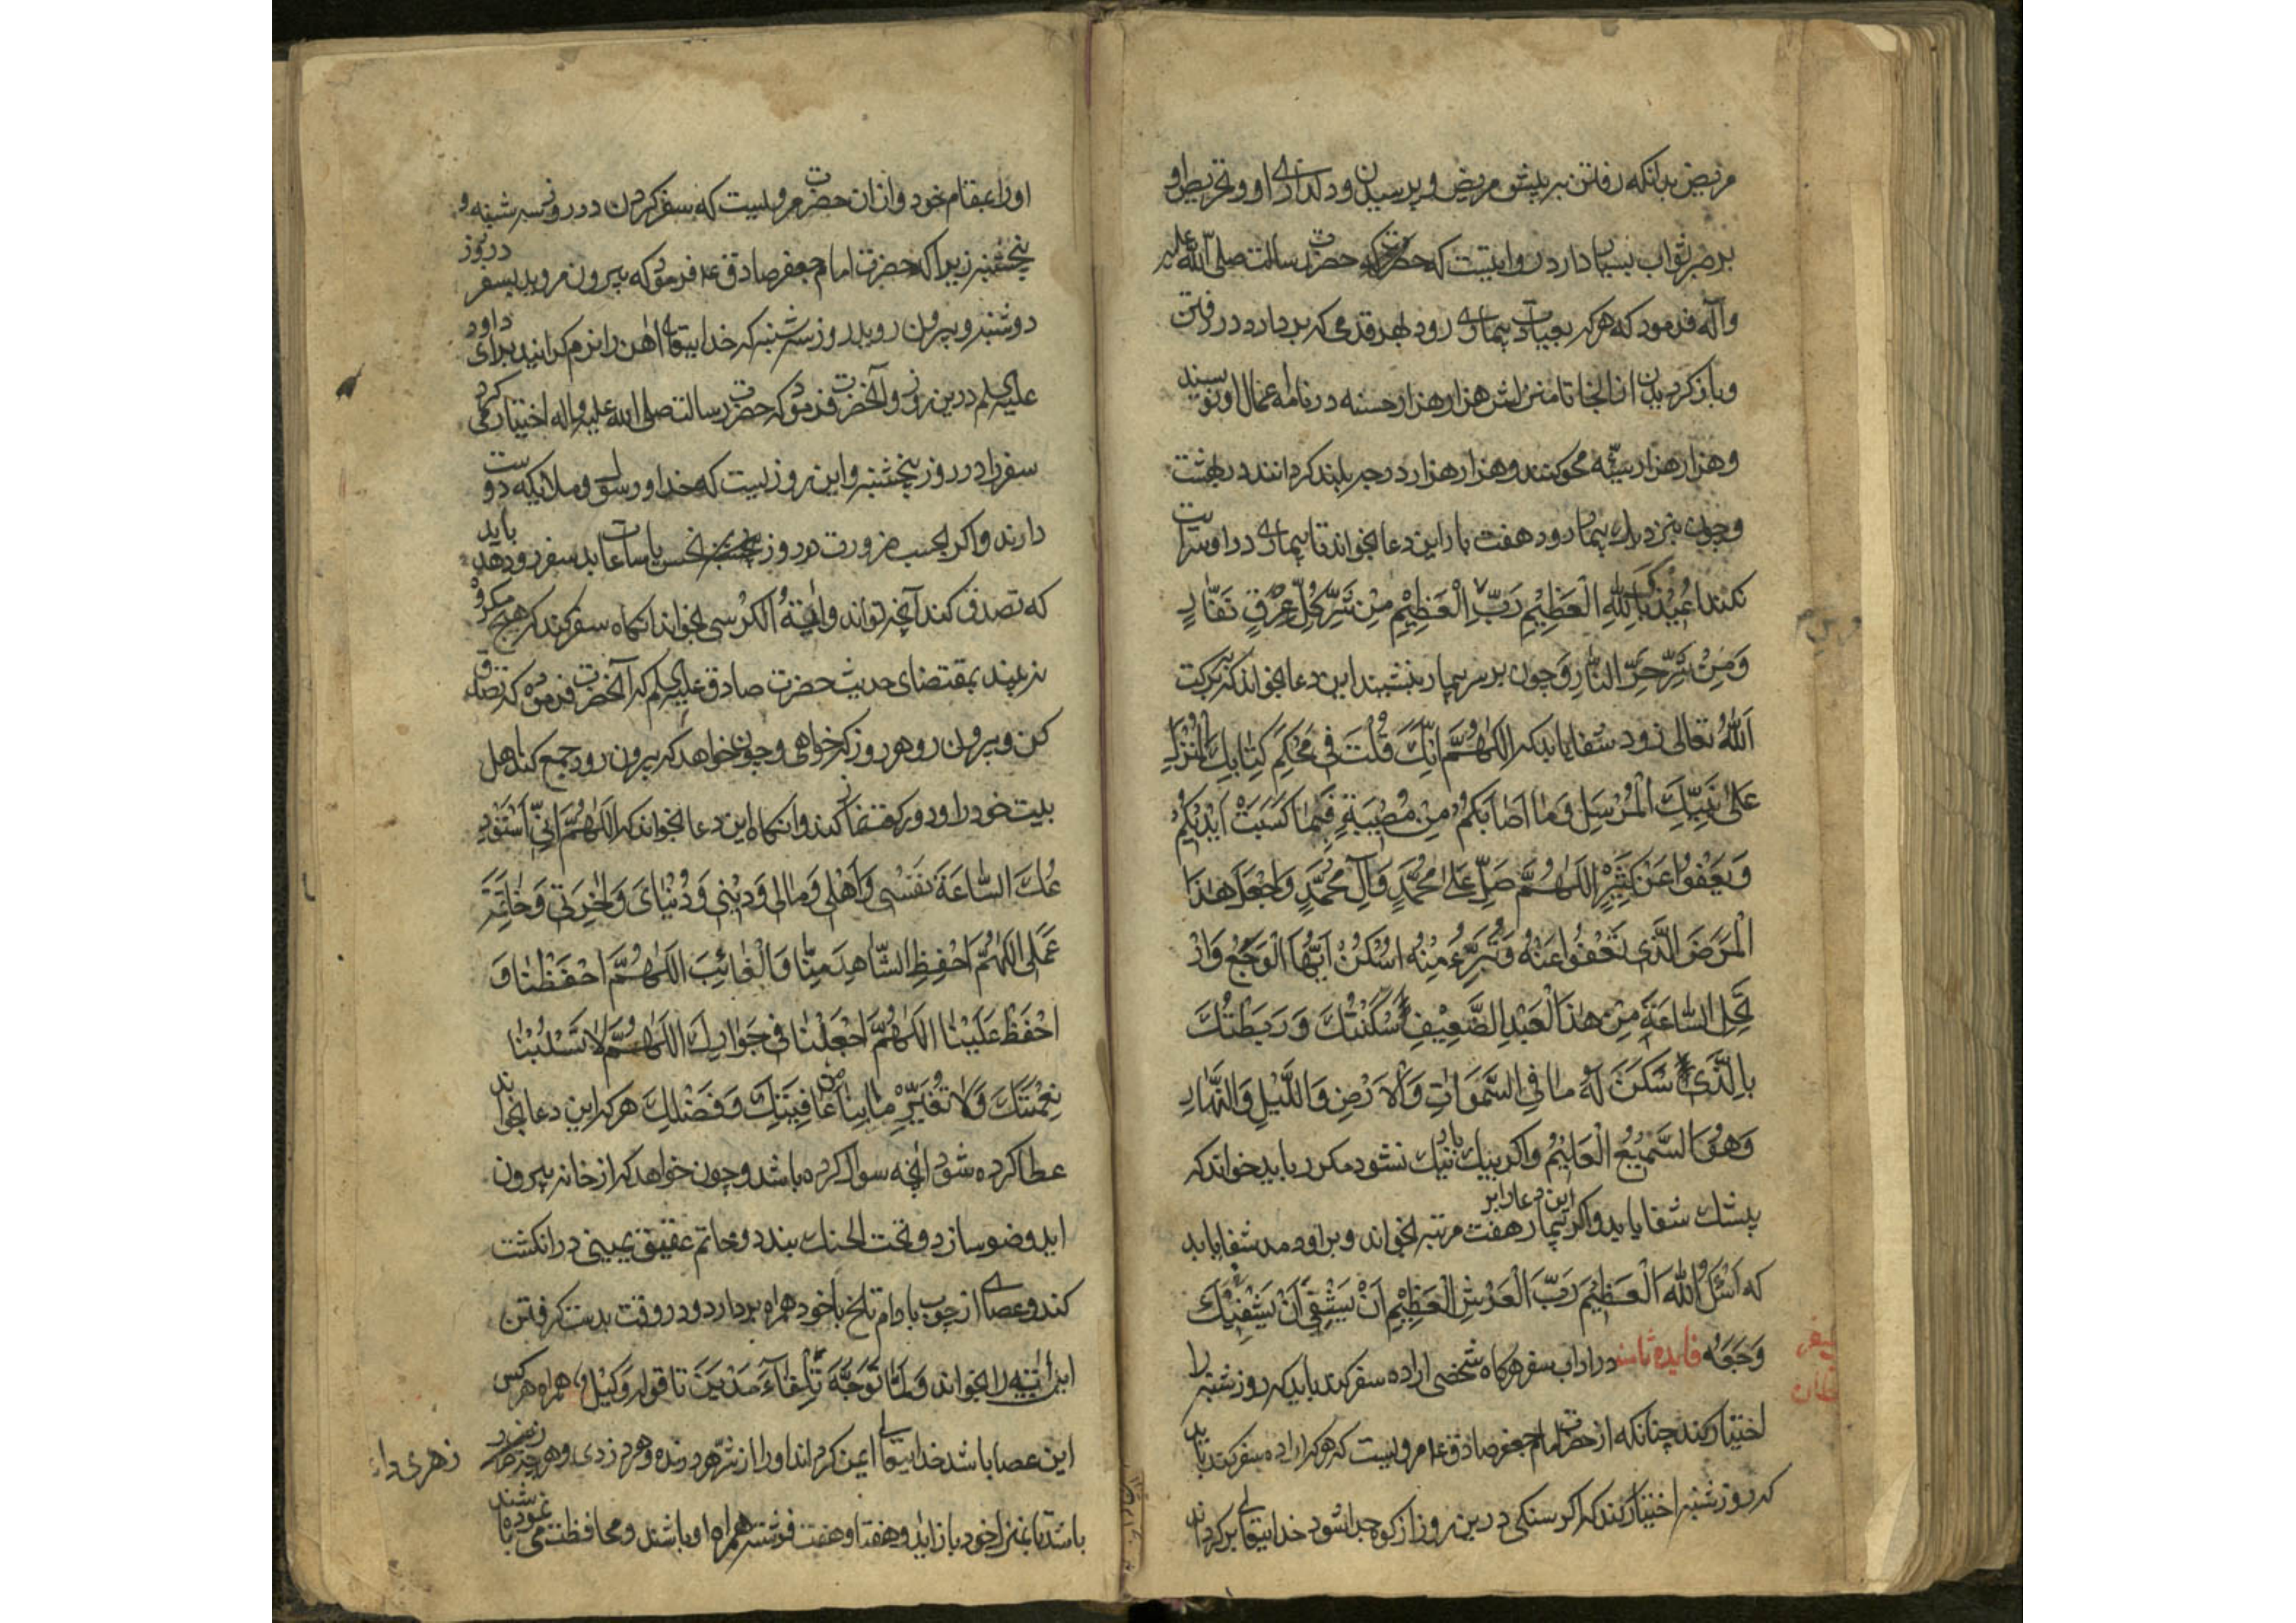 مریض بدانکه رفتن بر پیش مریض و پرسیدن و دلداری او و تحریص او
بر صبر ثواب بسیار دارد روایتست که حضرت رسالت صلی الله علیه
وآله فرمود که هر که بعیادت بیماری رود بهر قدمی که بردارد در رفتن
و باز کردیدن از انجا تا منزلش هزار هزار حسنه در نامه اعمال او نویسند
و هزار هزار سیئه محو کنند و هزار هزار درجه بلند کردانند در بهشت
و چون بنزدیک بیمار رود هفت بار این دعا بخواند تا بیماری در او سرایت
نکند اُعِیْذُکَ بِاللّٰهِ الْعَظِیْمِ رَبِّ الْعَظِیْمِ مِنْ شَرِّ کُلِّ عِرْقٍ نَفَّارٍ
وَمِنْ شَرِّ حَرِّ النَّارِ و چون بر سر بیمار بنشیند این دعا بخواند که ببرکت
اَللّٰهُ تعالی زود شفا یابد که اَللّٰهُمَّ اِنَّکَ قُلْتَ فِی مُحْکَمِ کِتَابِکَ الْمُنْزَلِ
عَلیٰ نَبِیِّکَ الْمُرْسَلِ وَمَا اَصَابَکُمْ مِنْ مُصِیْبَةٍ فَبِمَا کَسَبَتْ اَیْدِیْکُمْ
وَیَعْفُوا عَنْ کَثِیْرٍ اَللّٰهُمَّ صَلِّ عَلیٰ مُحَمَّدٍ وَآلِ مُحَمَّدٍ وَاجْعَلْ هٰذَا
الْمَرَضَ الَّذِی تَعْفُوا عَنْهُ وَتُبَرِّءُ مِنْهُ اُسْکُنْ اَیُّهَا الْوَجَعُ وَارْ
تَحِلِ السَّاعَةَ مِنْ هٰذَا الْعَبْدِ الضَّعِیْفِ سَکَّنْتُکَ وَرَبَطْتُکَ
بِالَّذِی سَکَنَ لَهُ مَا فِی السَّمٰوَاتِ وَالْاَرْضِ وَاللَّیْلِ وَالنَّهَارِ
وَهُوَ السَّمِیْعُ الْعَلِیْمُ و اکر بیک بار نیک نشود مکرر باید خواند که
بیشک شفا یابد و اکر این دعا را بر بیمار هفت مرتبه بخواند و بر او دمد شفا یابد
که اَسْئَلُ اللّٰهَ الْعَظِیْمَ رَبَّ الْعَرْشِ الْعَظِیْمِ اَنْ یَشْفِیَکَ
وَجَعَهُ فایده ثامنه در اداب سفر هرکاه شخصی اراده سفر کند باید که روز شنبه را
اختیار کند چنانکه از حضرت امام جعفر صادق ع مرویست که هر که اراده سفر کند باید
که روز شنبه اختیار کند که اکر سنکی درین روز از کوه جدا شود خدایتعالی برکرداند
اورا بمقام خود و از ان حضرت مرویست که سفر کردن در روز سه شنبه و
پنجشنبه زیرا که حضرت امام جعفر صادق ع فرمود که بیرون مروید بسفر در روز
دوشنبه و بیرون روید روز سه شنبه که خدایتعالی اهن را نرم کردانید برای داود
علیه السلم درین روز و آنحضرت فرمود که حضرت رسالت صلی الله علیه و اله اختیار کردی
سفر را در روز پنجشنبه و این روزیست که خدا و رسول و ملایکه دوست
دارند و اکر بحسب ضرورت در روز نحس یا ساعات بد سفر رود باید
که تصدق کند آنچه تواند و ایة الکرسی بخواند انکاه سفر کند که هیچ مکروه
نرسد بمقتضای حدیث حضرت صادق علیه السلم که آنحضرت فرموده که تصدق
کن و بیرون رو هر روز که خواهی و چون خواهد که بیرون رود جمع کند اهل
بیت خود را و دو رکعت نماز کند و انکاه این دعا بخواند که اَللّٰهُمَّ اِنِّی اَسْتَوْدِ
عُکَ السَّاعَةَ نَفْسِی وَاَهْلِی وَمَالِی وَدِیْنِی وَدُنْیَایَ وَاٰخِرَتِی وَخَاتِمَةَ
عَمَلِی اَللّٰهُمَّ احْفَظِ الشَّاهِدَ مِنَّا وَالْغَائِبَ اَللّٰهُمَّ احْفَظْنَا وَ
احْفَظْ عَلَیْنَا اَللّٰهُمَّ اجْعَلْنَا فِی جَوَارِکَ اَللّٰهُمَّ لَا تَسْلُبْنَا
نِعْمَتَکَ وَلَا تُغَیِّرْ مَا بِنَا مِنْ عَافِیَتِکَ وَفَضْلِکَ هر که این دعا بخواند
عطا کرده شود آنچه سوال کرده باشد و چون خواهد که از خانه بیرون
اید وضو سازد و تحت الحنک بندد و خاتم عقیق یمینی در انکشت
کند و عصای از چوب بادام تلخ با خود همراه بردارد و در وقت بدست کرفتن
این ایه را بخواند وَلَمَّا تَوَجَّهَ تِلْقَاءَ مَدْیَنَ تا قول وَکِیْلٌ و همراه هر کس
این عصا باشد خدایتعالی ایمن کرداند او را از شر هر درنده و هر دزدی و هر
زهری دار
باشد تا بمنزل خود باز اید و هفتاد و هفت فرشته همراه او باشند و محافظت می نموده باشند